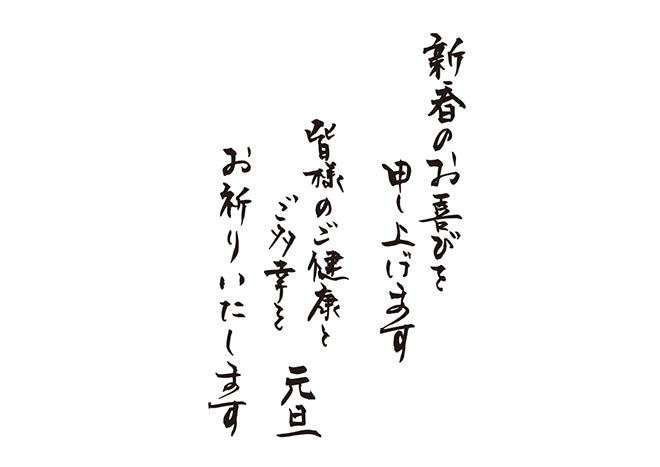 新春のお喜びを
申し上げます
皆様のご健康と
ご多幸を
お祈りいたします
元旦